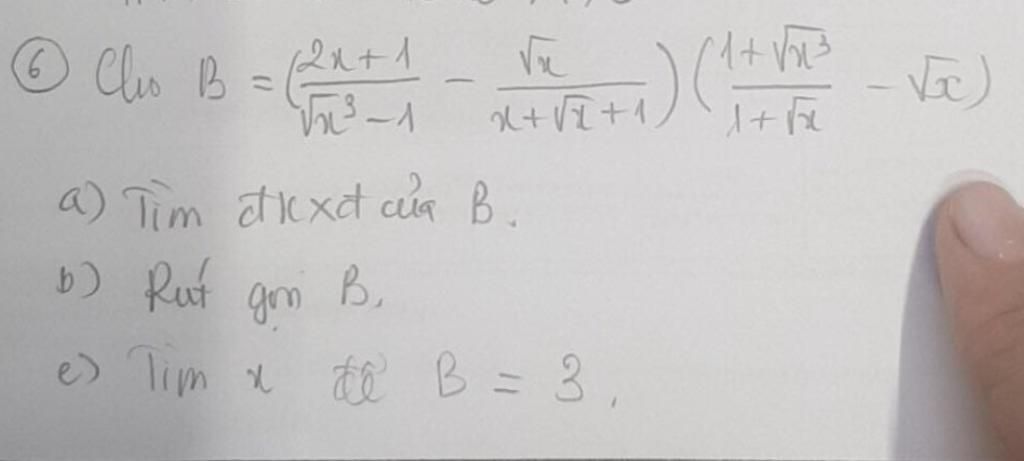 ⑥ Cho B = (\frac{2x+1}{\sqrt{x^3}-1} - \frac{\sqrt{x}}{x+\sqrt{x}+1})(\frac{1+\sqrt{x^3}}{1+\sqrt{x}} - \sqrt{x})
a) Tìm đkxđ của B.
b) Rút gọn B.
c) Tìm x để B = 3.